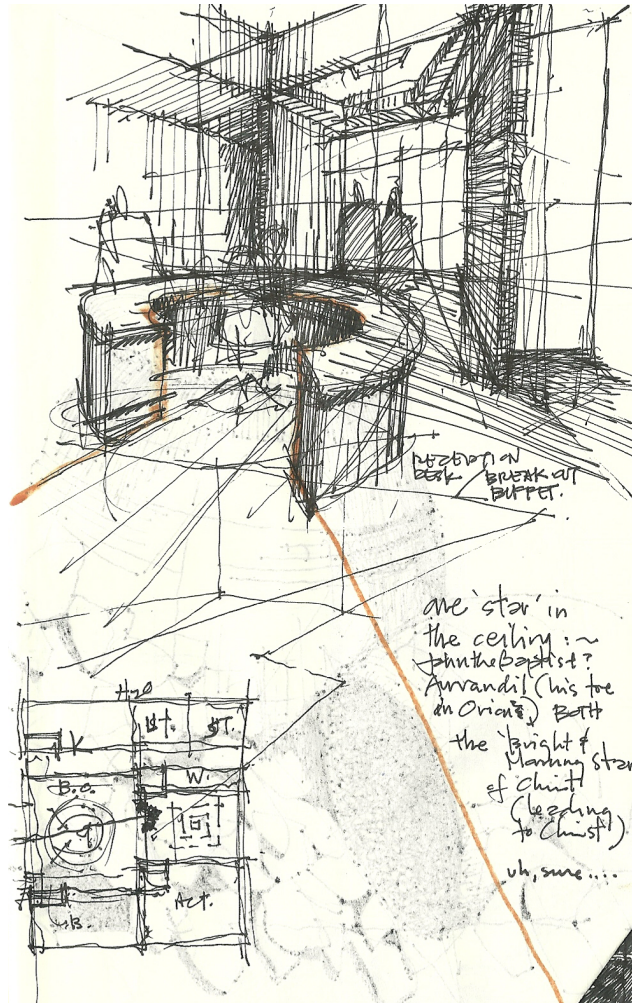 RECEPTION
DESK / BREAKOUT
BUFFET.
one 'star' in
the ceiling : ~
John the Baptist?
Aurvandil (his toe
in Orion?) BOTH
the 'Bright &
Morning Star
of Christ
(leading
to Christ)
uh, sure....
H2O
ST. ST.
K
W.
B.O.
ACT.
B.